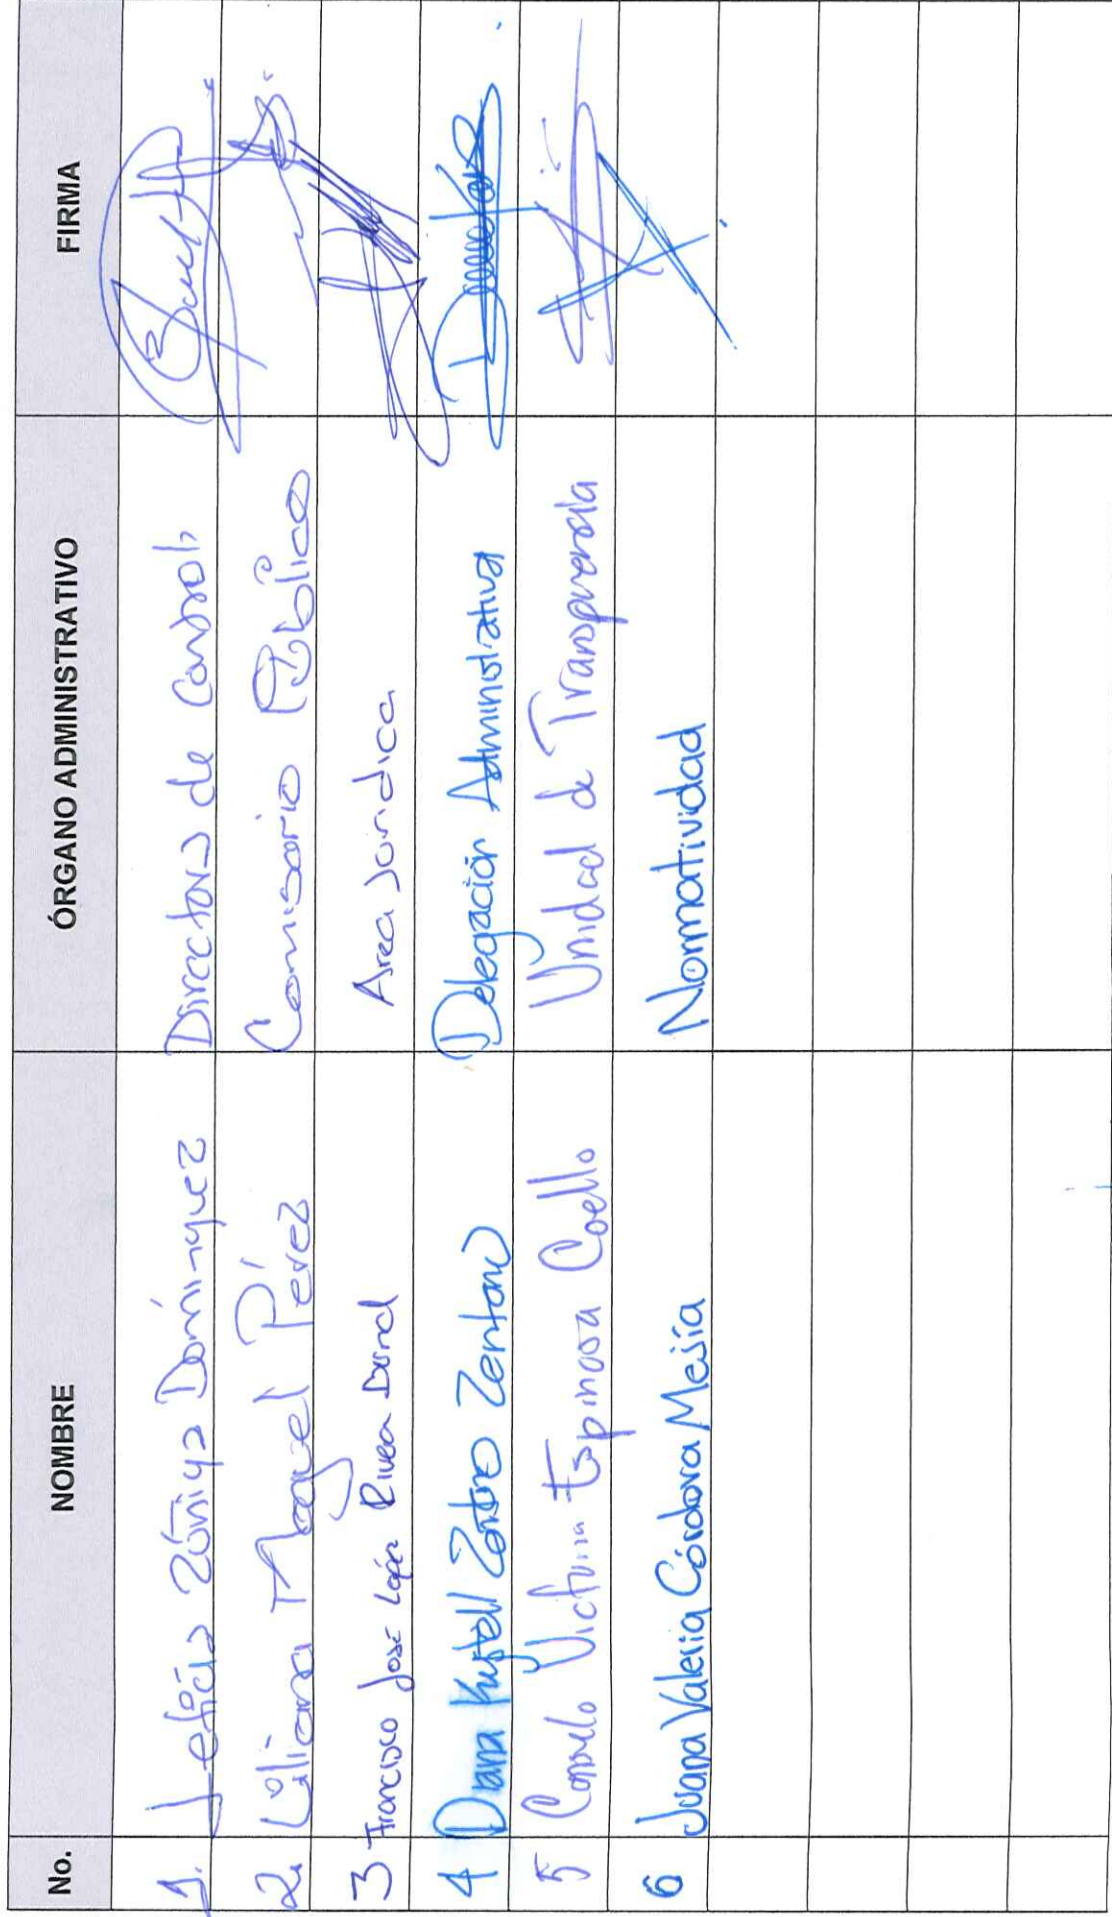 No. NOMBRE ÓRGANO ADMINISTRATIVO FIRMA
1. Leticia Zúñiga Domínguez Directora de Control
2. Liliana Moguel Pérez Comisario Público
3 Francisco José López Rivera Area Juridica
4 Diana Kristell Zenteno Delegación Administrativa
5 Consuelo Victoria Espinosa Coello Unidad de Transparencia
6 Juana Valeria Córdova Mejía Normatividad